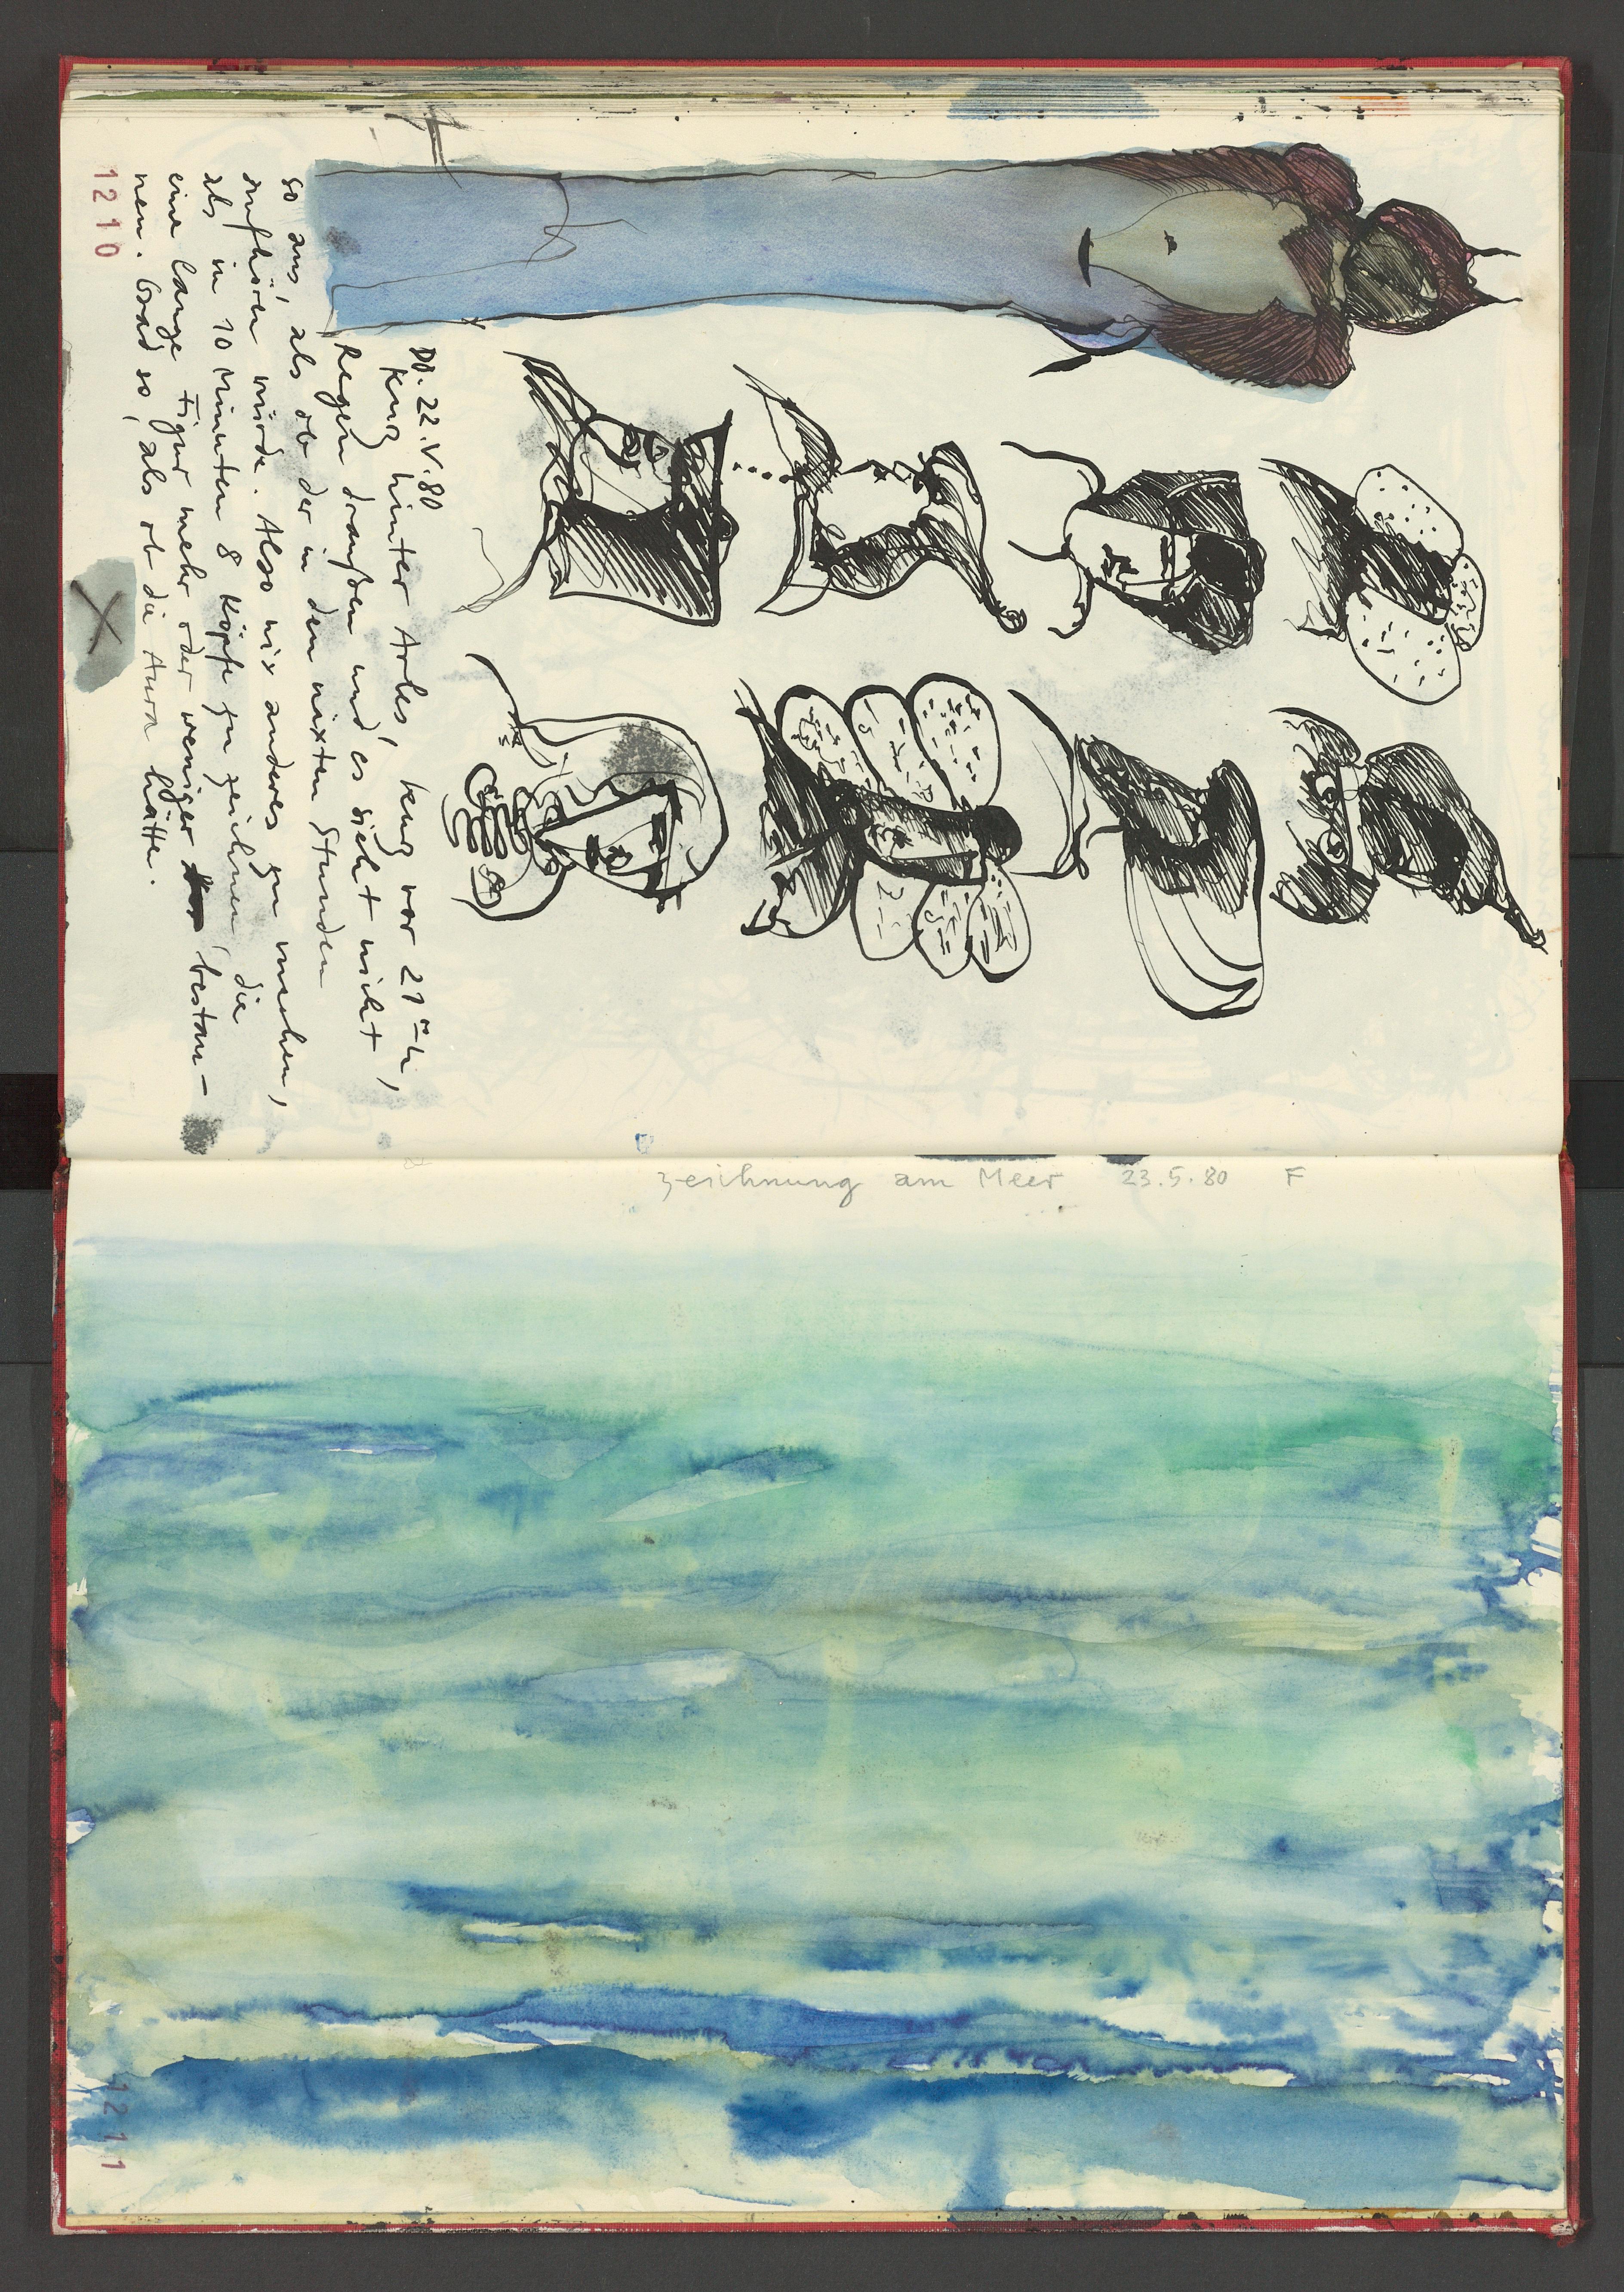 DO. 22.V.80
kurz hinter Arles, kurz vor 21 h,
Regen draußen und es sieht nicht
so aus, als ob der in den nixten Stunden
aufhören würde. Also nix anderes zu machen,
als in 10 Minuten 8 Köpfe zu zeichnen, die
eine lange Figur mehr oder weniger bestau-
nen. Grad so, als ob die Aura hätte.
1210
Zeichnung am Meer 23.5.80 F
1211